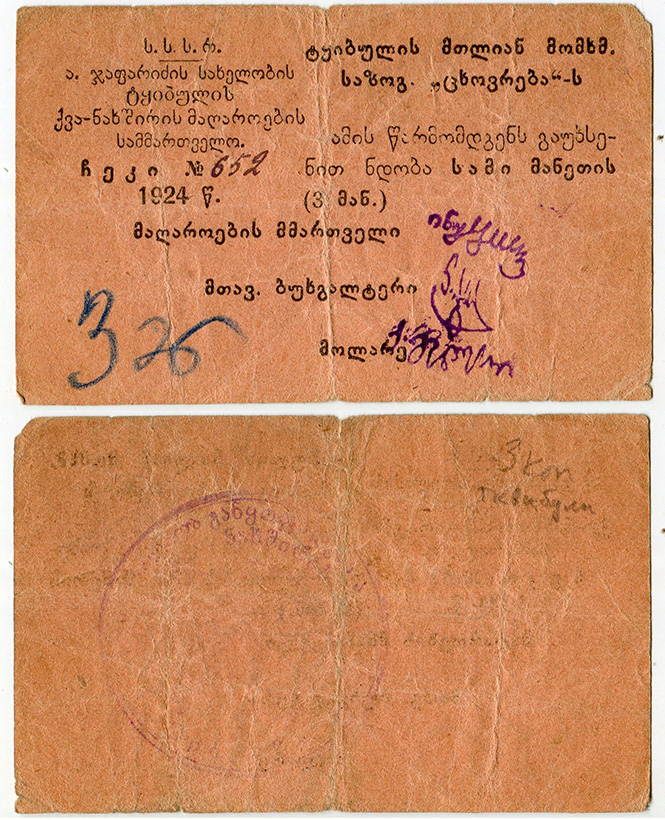 ს. ს. ს. რ.
ა. ჯაფარიძის სახელობის
ტყიბულის
ქვა-ნახშირის მაღაროების
სამმართველო.
ჩეკი № 652
1924 წ.
ტყიბულის მთლიან მომხმ.
საზოგ. „ცხოვრება“-ს
ამის წარმომდგენს გაუხსე-
ნით ნდობა სამი მანეთის
(3 მან.)
მაღაროების მმართველი
მთავ. ბუხგალტერი
მოლარე
3 коп
Тквибули